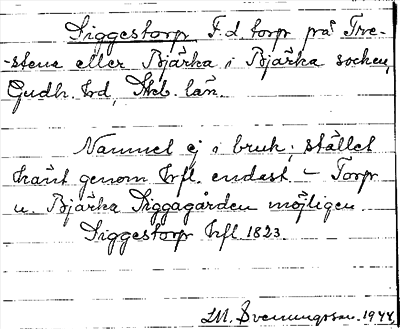 Siggestorp F.d. torp på Tre-
-stena eller Bjärka i Bjärka socken,
Gudh. hd, Skb. län.
Namnet ej i bruk; stället
känt genom hfl. endast. - Torp
u. Bjärka Siggagården möjligen.
Siggestorp hfl 1823.
LM. Svenungsson. 1944.